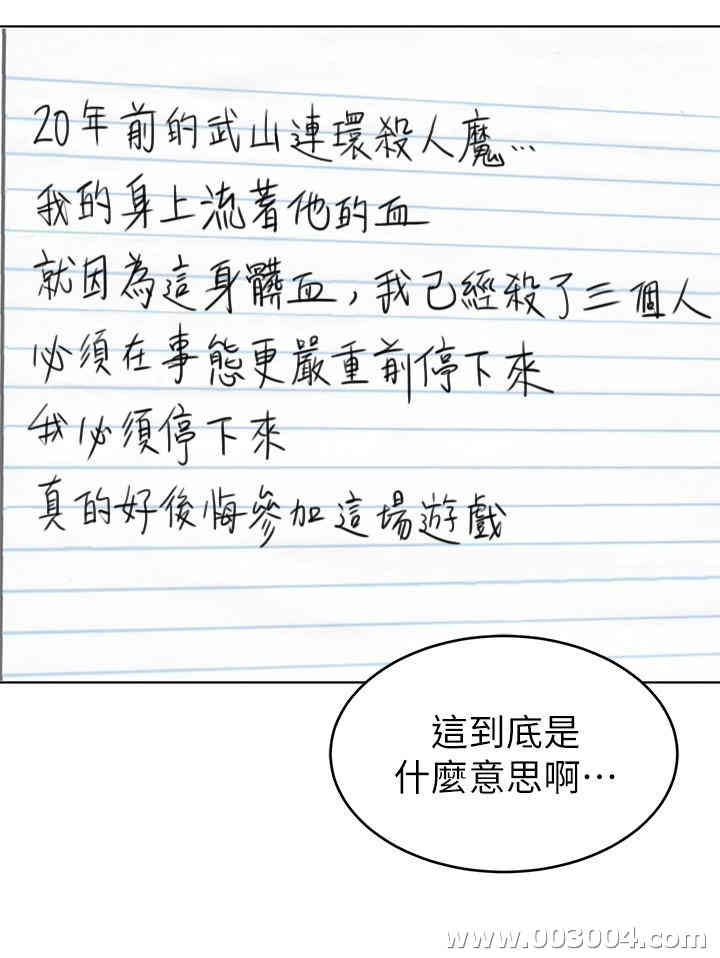 20年前的武山連環殺人魔…
我的身上流著他的血
就因為這身髒血，我已經殺了三個人
必須在事態更嚴重前停下來
我必須停下來
真的好後悔參加這場遊戲
這到底是
什麼意思啊…
www.003004.com